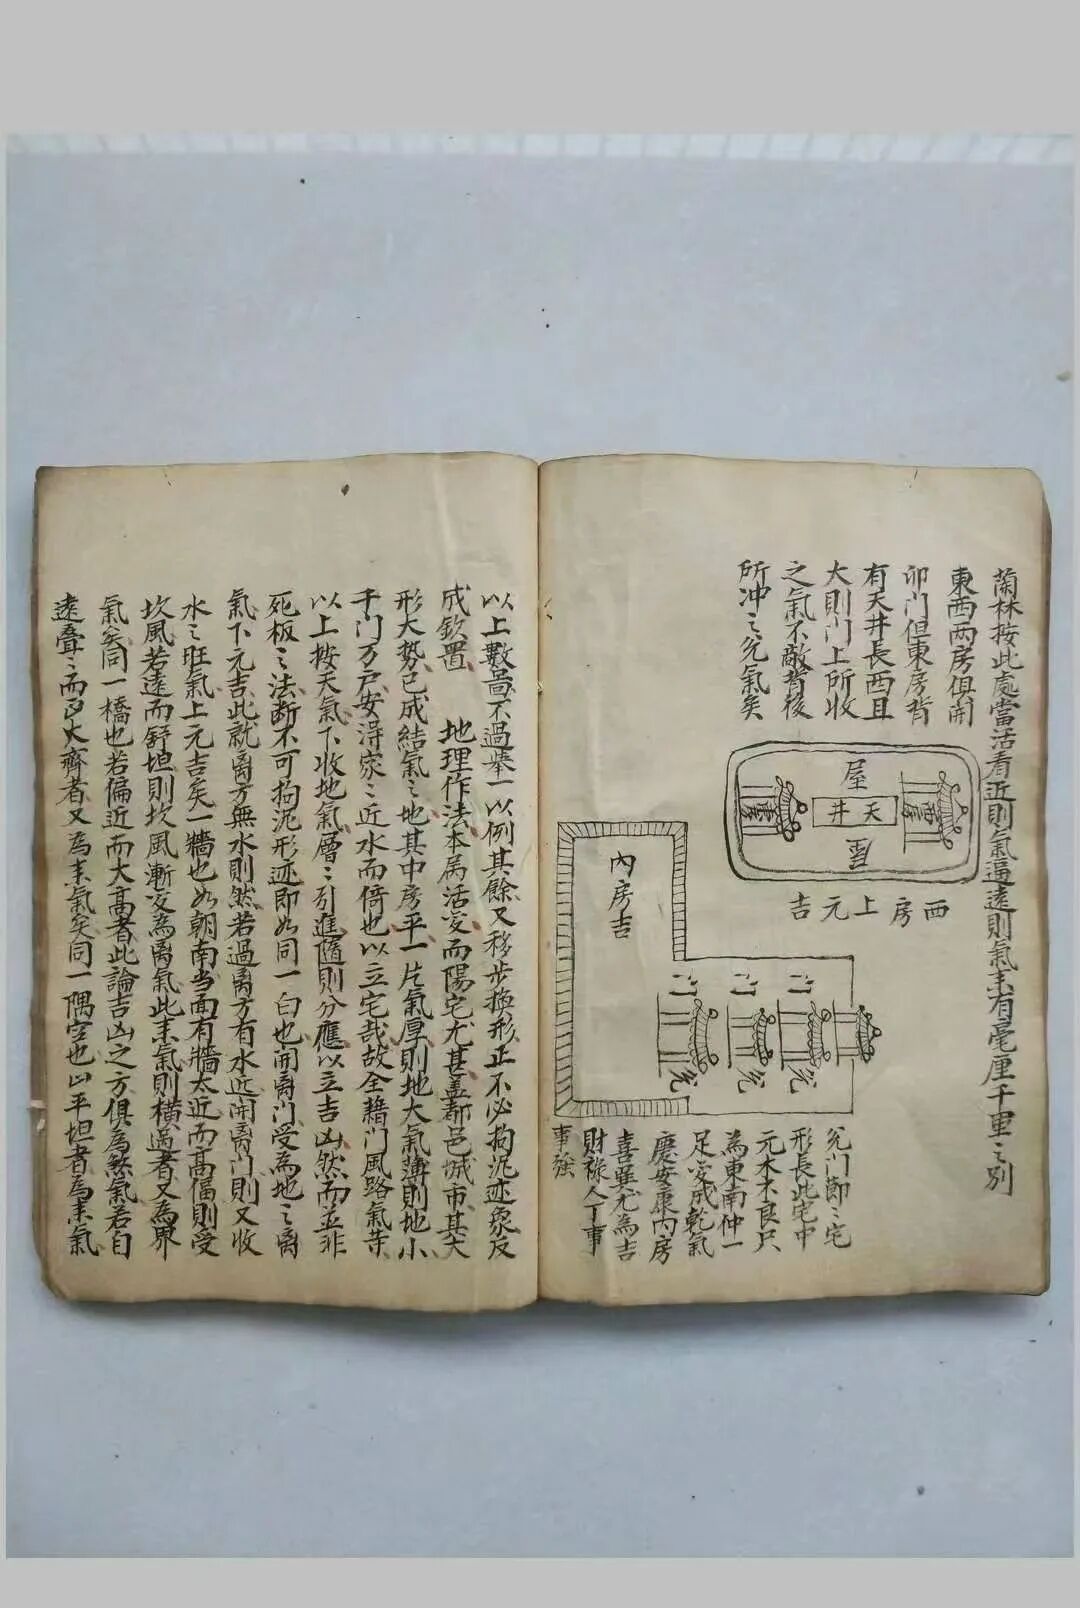 蘭林按此處當活看近則氣逼遠則氣耒有毫厘千里之別
東西两房俱開
卯门但東房背
有天井長西且
大則门上所收
之氣不敵背後
所冲之兊氣矣
屋
天井
屋
西房上元吉
內房吉
兊门節之宅
形長此宅中
元木不良只
為東南仲一
足变成乾氣
慶安康內房
喜畢尤為吉
財禄人丁事
事強
以上數啚不過舉一以例其餘又移步換形正不必拘泥迹象反
成欽置　地理作法本属活变而陽宅尤甚盖都邑城市其大
形大势已成結氣之地其中房平一片氣厚則地大氣薄則地小
千门万户安淂家之近水而倚也以立宅哉故全藉门風路氣等
以上按天氣下收地氣層之引進隨則分應以立吉凶然而並非
死板之法断不可拘泥形迹即如同一白也開离门受為地之离
氣下元吉此就离方無水則然若過离方有水近開离门則又收
水之旺氣上元吉矣一牆也如朝南当面有牆太近而高偪則受
坎風若遠而舒坦則坎風漸变為离氣此耒氣則橫過者又為界
氣矣同一橋也若偏近而大高者此論吉凶之方俱為煞氣若自
遠叠之而大齊者又為耒氣矣同一隅空也山平坦者為耒氣